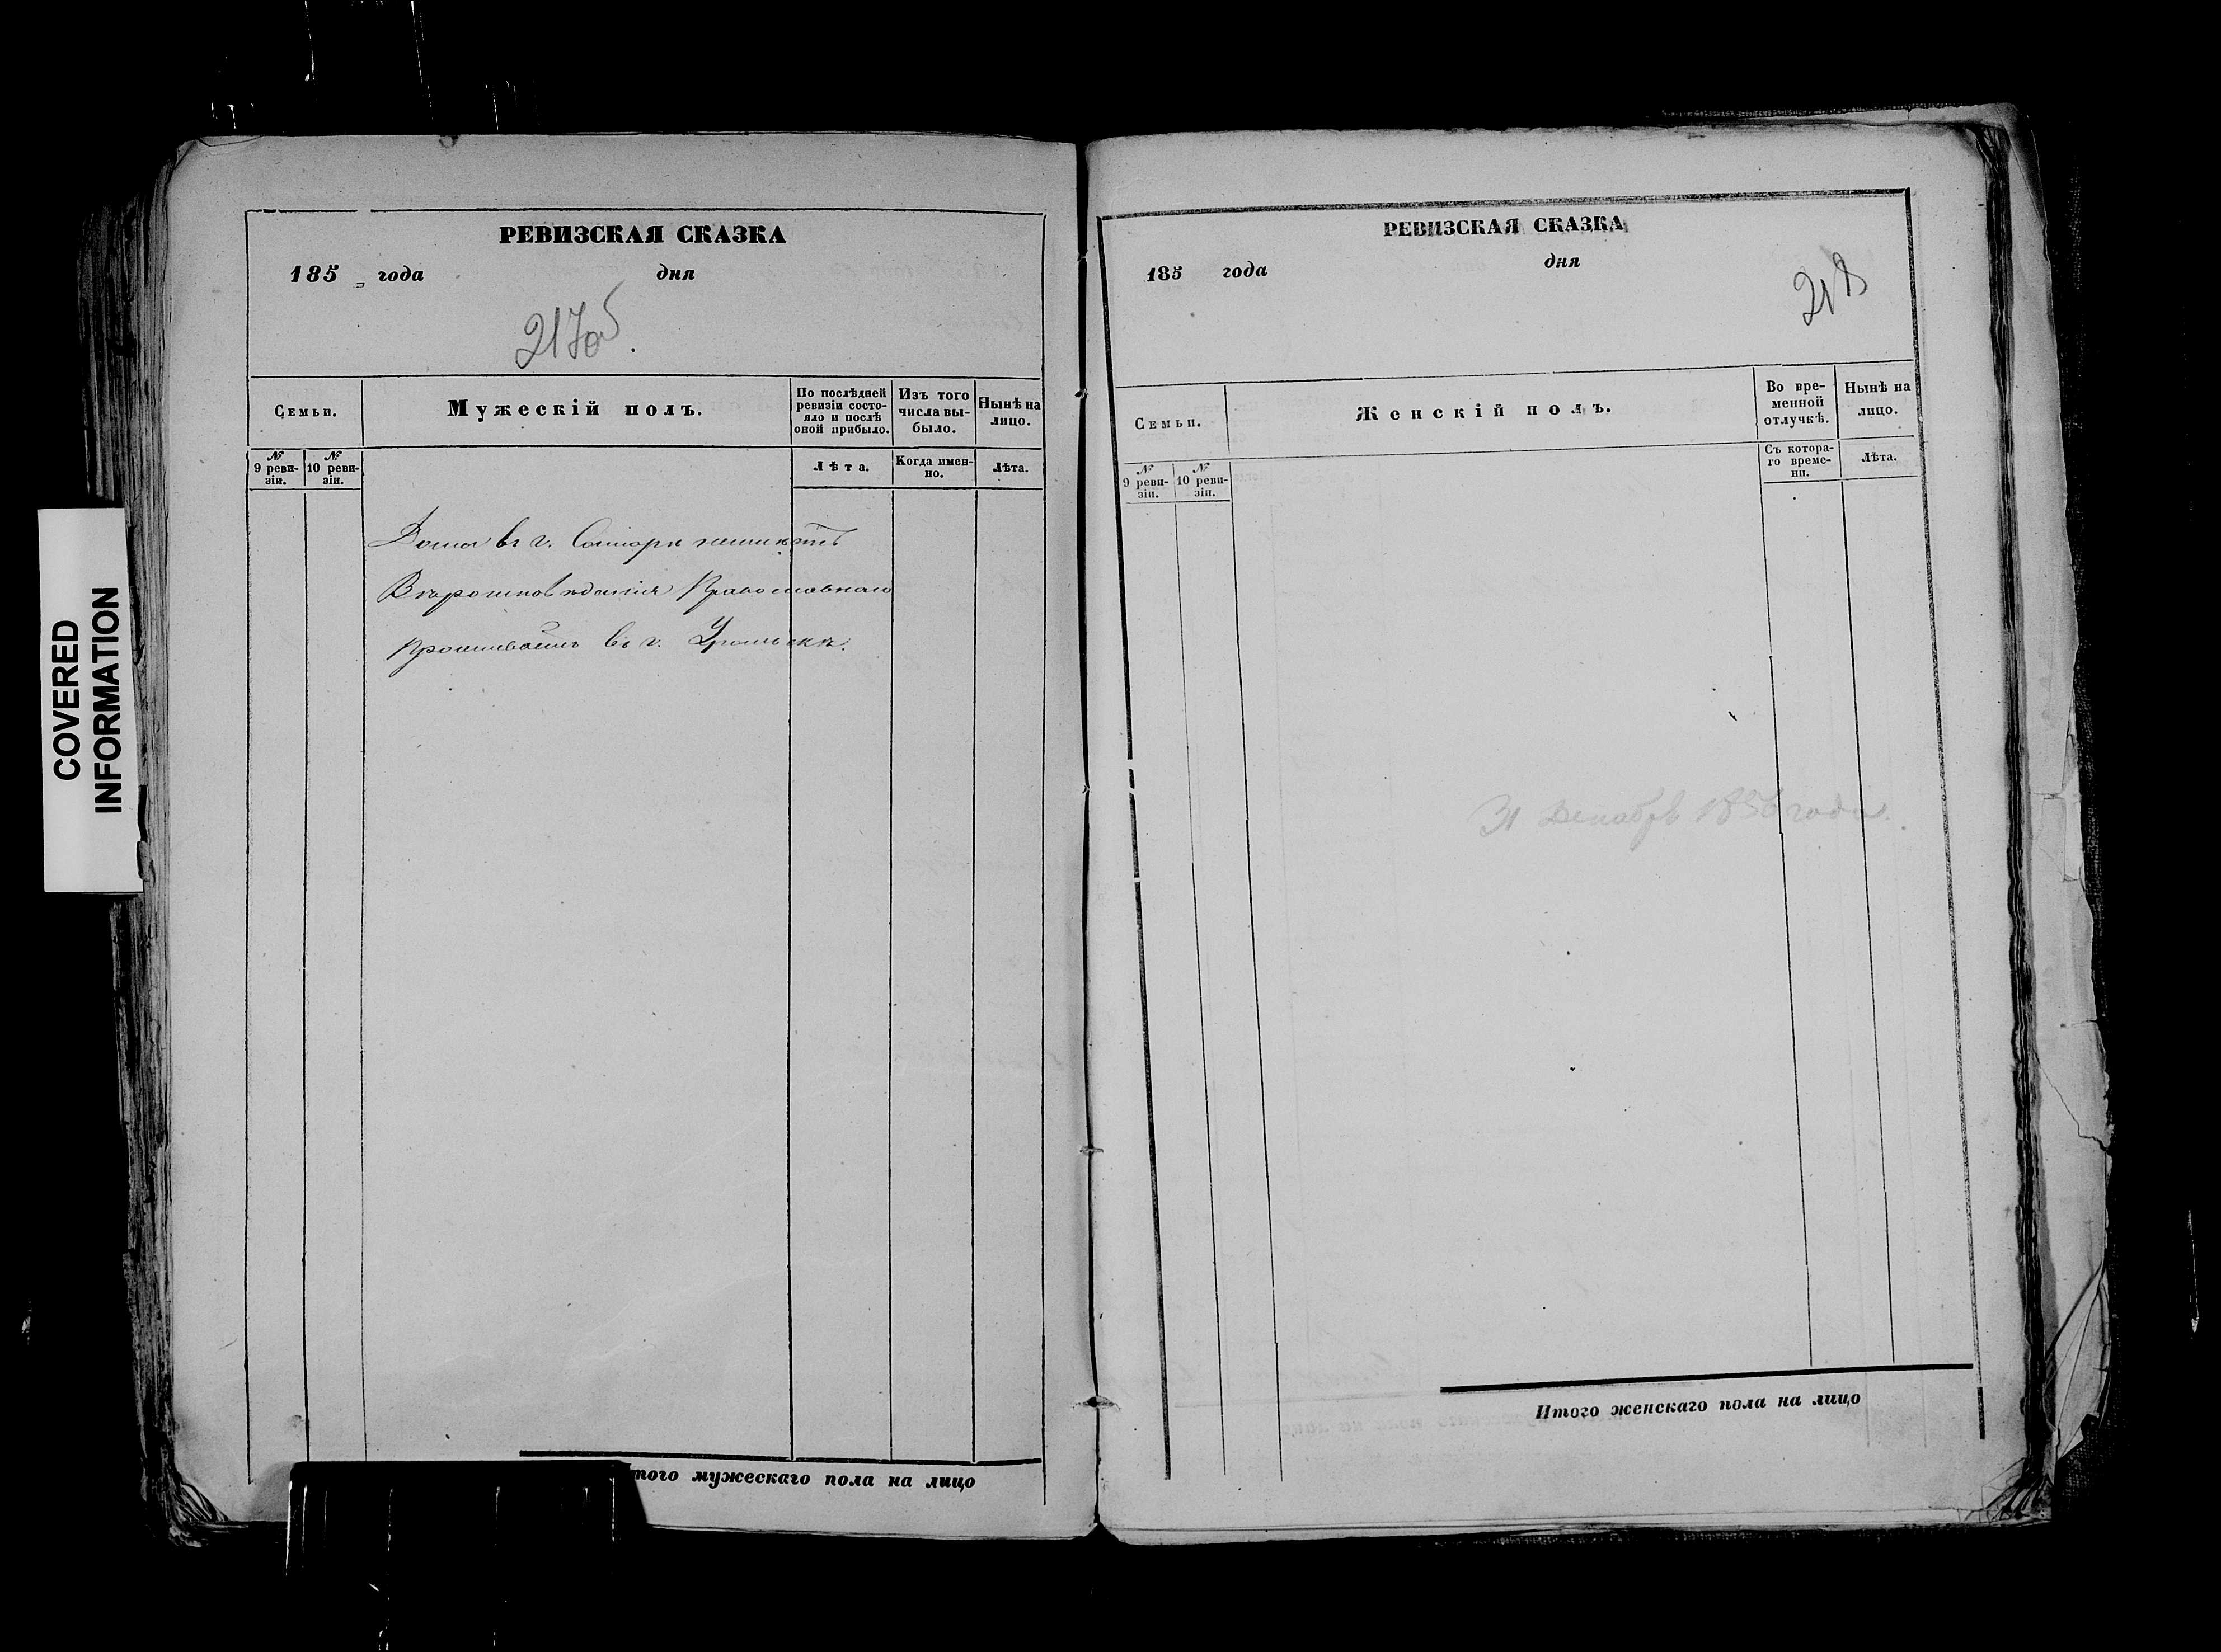 COVERED
INFORMATION
РЕВИЗСКАЯ СКАЗКА
185 года дня
217об.
Семьи.
Мужескій полъ.
По послѣдней
ревизіи состо-
яло и послѣ
оной прибыло.
Изъ того
числа вы-
было.
Нынѣ на
лицо.
№
9 реви-
зіи.
№
10 реви-
зіи.
Лѣта.
Когда имен-
но.
Лѣта.
Дома въ г. Самарѣ неимѣетъ
Вѣроисповѣданія Православнаго
Проживаетъ въ г. Уральскѣ.
того мужескаго пола на лицо
РЕВИЗСКАЯ СКАЗКА
185 года дня
218
Семьи.
Женскій полъ.
Во вре-
менной
отлучкѣ.
Нынѣ на
лицо.
№
9 реви-
зіи.
№
10 реви-
зіи.
Съ котора-
го време-
ни.
Лѣта.
31 Декабря 1856 года.
Итого женскаго пола на лицо